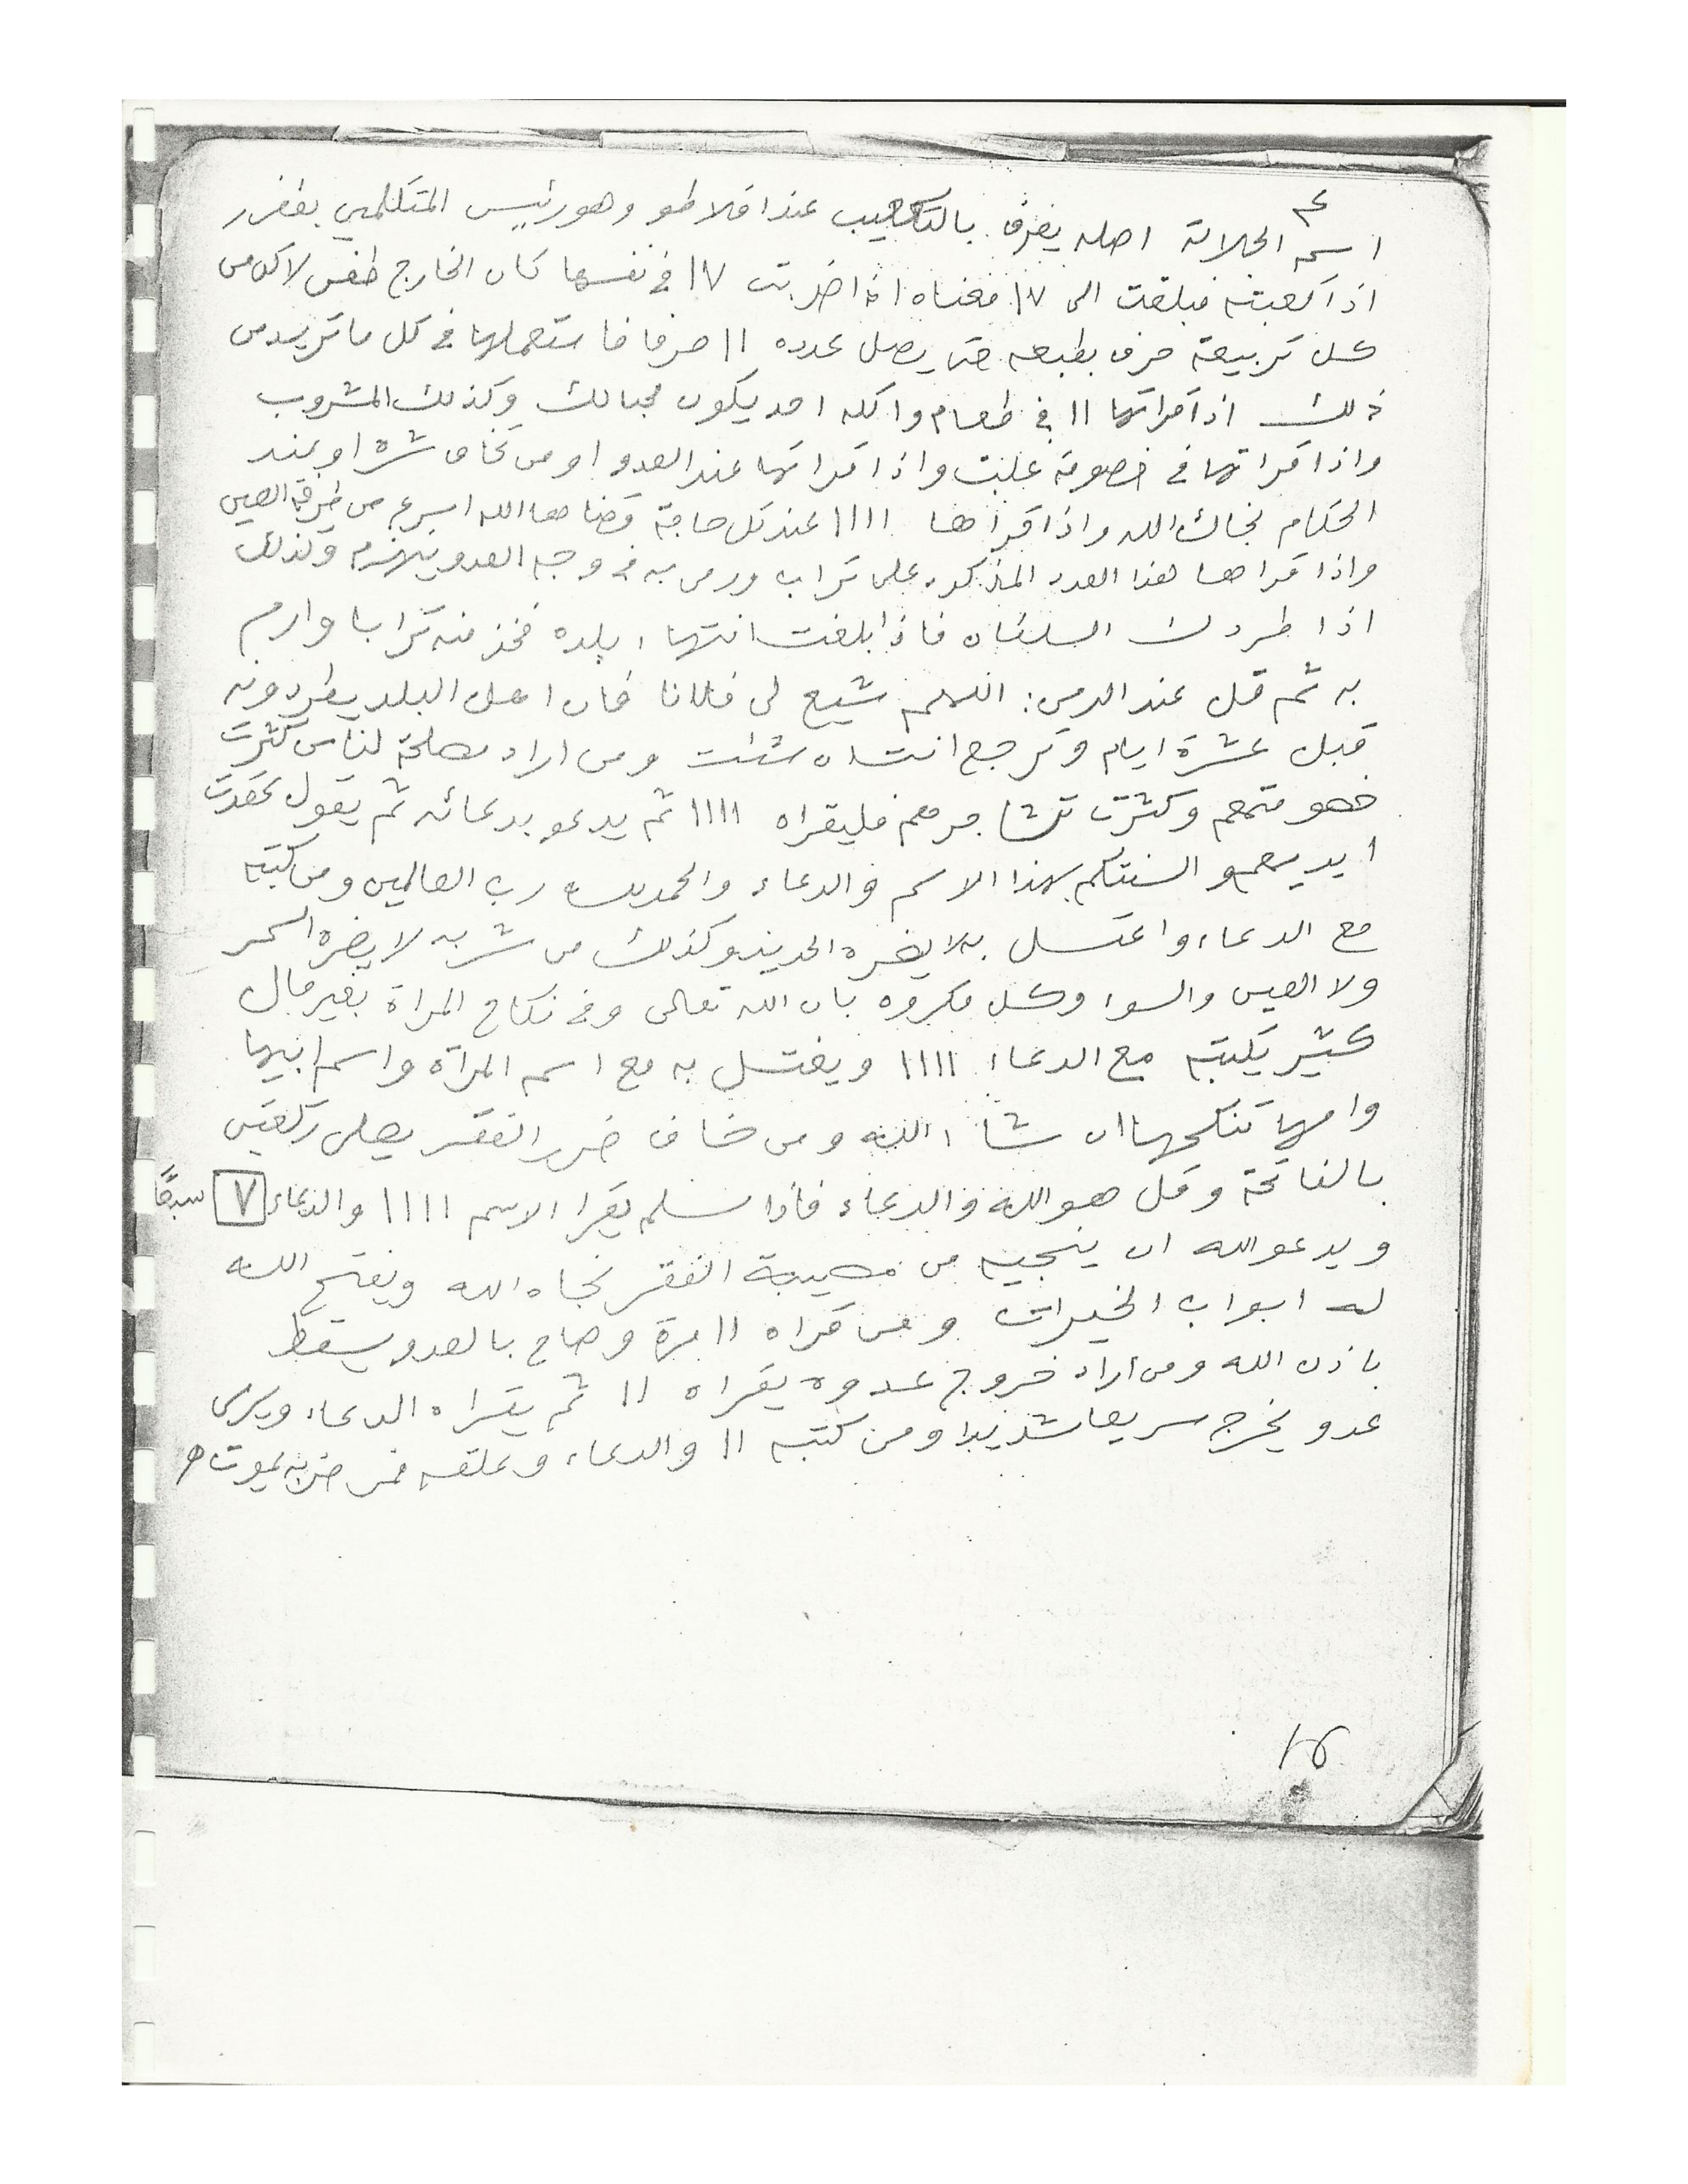 اسم الجلالة اصله يعرف بالتكعيب عند افلاطو وهو رئيس المتكلمين
اذا كعبته فبلغت الى ١٧ فمعناه اذا ضربت ١٧ في نفسها كان الخارج
كل تربيعة حرف بطبعه حتى يصل عدده ١١ حرفا فاستعملها في كل ما تريد من
ذلك اذا قراتها ١١ في طعام واكله احد يكون محبا لك وكذلك المشروب
واذا قراتها في خصومة غلبت واذا قراتها عند العدو او من تخاف شره او عند
الحكام نجاك الله واذا قراها ١١١١ عند كل حاجة قضاها الله اسرع من طرفة العين
واذا قراها هذا العدد المذكور على تراب ورمى به في وجه العدو ينهزم وكذلك
اذا طردك السلطان فاذا بلغت انتهاء بلده فخذ منه ترابا وارم
به ثم قل عند الرمي: اللهم شيع لى فلانا فان اهل البلد يطردونه
قبل عشرة ايام وترجع انت ان شئت ومن اراد مصلحة لناس كثرت
خصومتهم وكثرت تشاجرهم فليقراه ١١١١ ثم يدعو بدعائه ثم يقول عقدت
السنتكم بهذا الاسم والدعاء والحمد لله رب العالمين ومن كتبه
مع الدعاء واغتسل به لا يضره الحديد وكذلك من شربه لا يضره السحر
ولا العين والسوء وكل مكروه بان الله تعالى وفي نكاح المراة بغير مال
كثير يكتبه مع الدعاء ١١١١ ويغتسل به مع اسم المراة واسم ابيها
وامها تنكحها ان شاء الله ومن خاف ضرر الفقر يصلى ركعتين
بالفاتحة وقل هو الله والدعاء فاذا سلم يقرا الاسم ١١١١ والدعاء ٧ سبعًا
ويدعو الله ان ينجيه من مصيبة الفقر نجاه الله ويفتح الله
له ابواب الخيرات ومن قراه ١١ مرة وصاح بالعدو يسقط
باذن الله ومن اراد خروج عدوه يقراه ١١ ثم يقراه الدعاء ويرى
عدو يخرج سريعا شديدا ومن كتبه ١١ والدعاء وعلقه فمن ضربه يموت